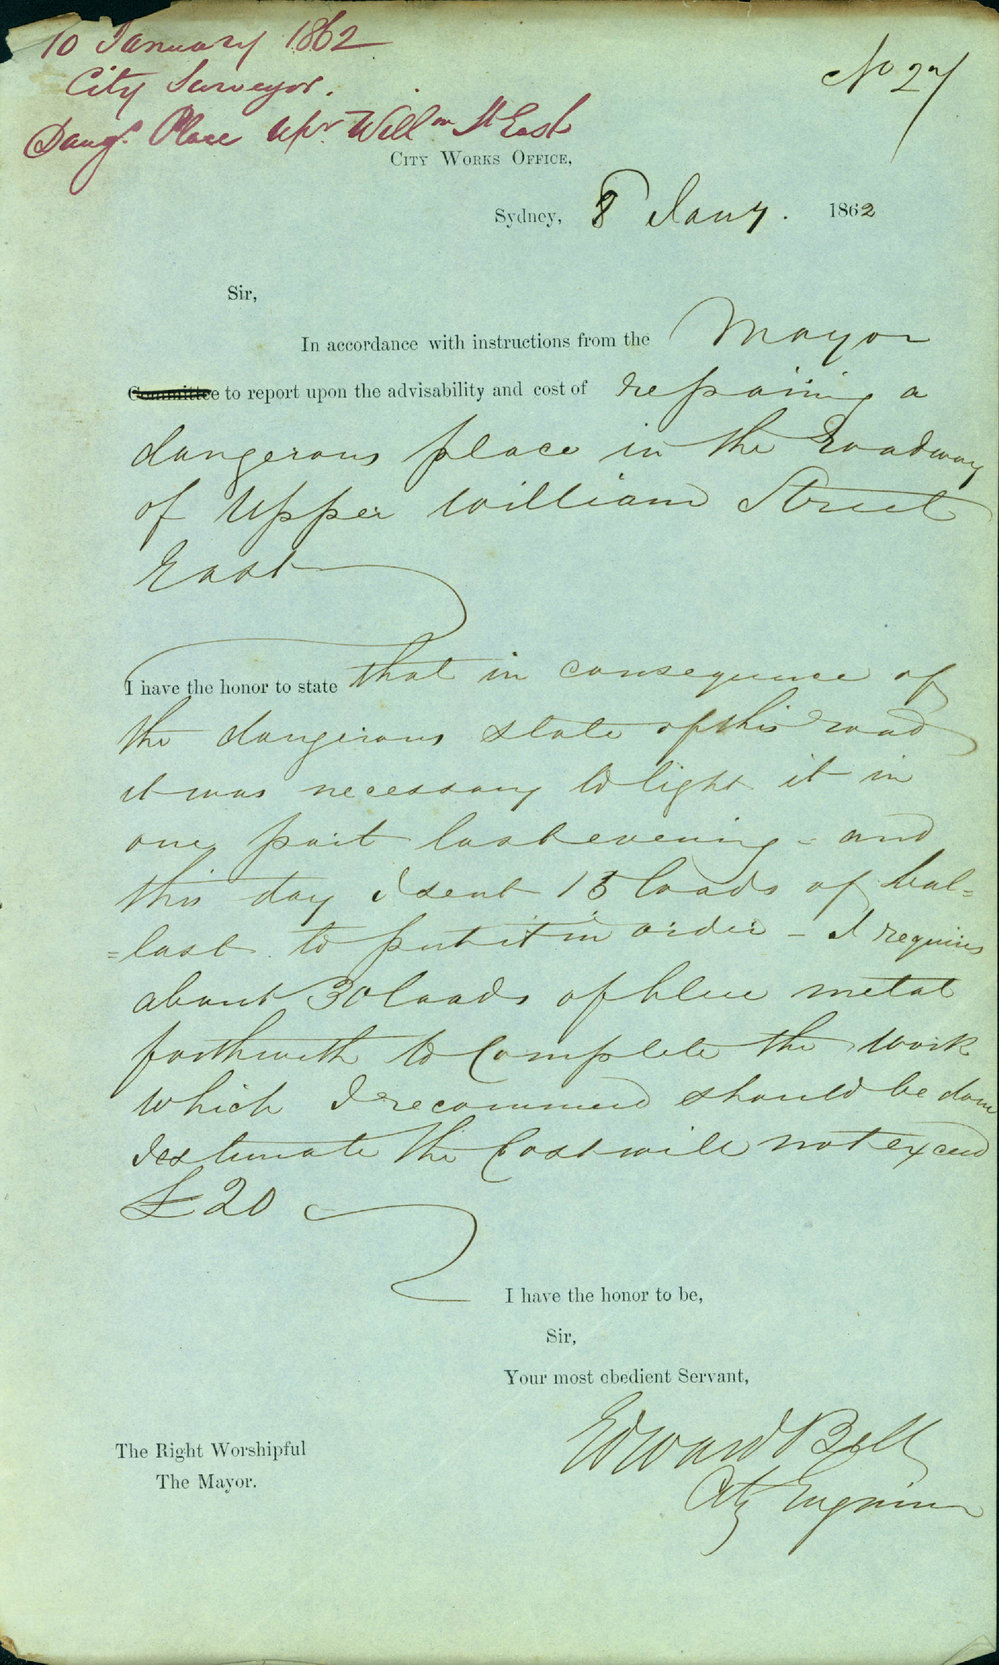 10 January 1862
City Surveyor.
Dangs. Place Upr. Willm St East
No 27
City Works Office,
Sydney, 8 Jany. 1862
Sir,
In accordance with instructions from the Mayor
Committee to report upon the advisability and cost of repairing a
dangerous place in the Roadway
of Upper William Street
East
I have the honor to state that in consequence of
the dangerous state of this road
it was necessary to light it in
one part last evening - and
this day I sent 15 loads of bal=
=last to put it in order - I require
about 30 loads of blue metal
forthwith to complete the work
which I recommend should be done
I estimate the Cost will not exceed
£20
I have the honor to be,
Sir,
Your most obedient Servant,
Edward Bell
City Engineer
The Right Worshipful
The Mayor.